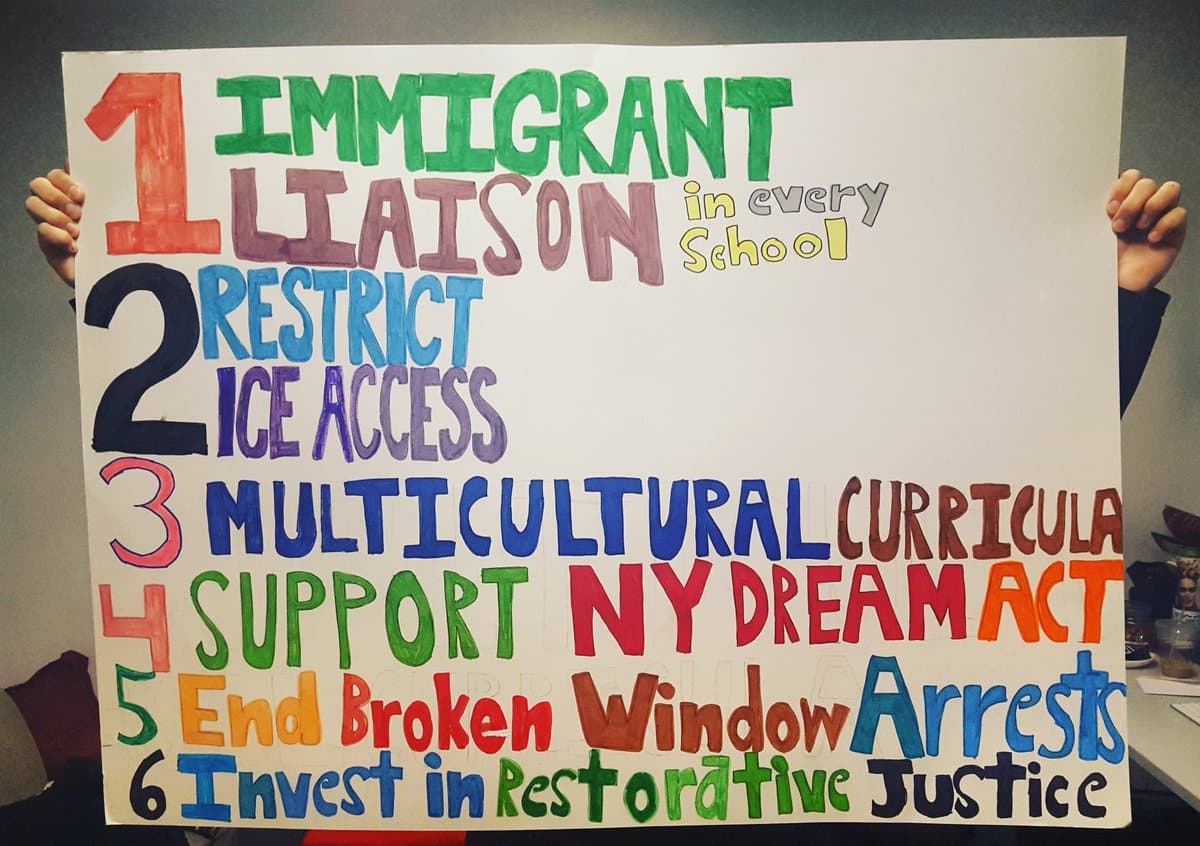 1 IMMIGRANT
LIAISON in every
School
2 RESTRICT
ICE ACCESS
3 MULTICULTURAL CURRICULA
4 SUPPORT NY DREAM ACT
5 End Broken Window Arrests
6 Invest in Restorative Justice